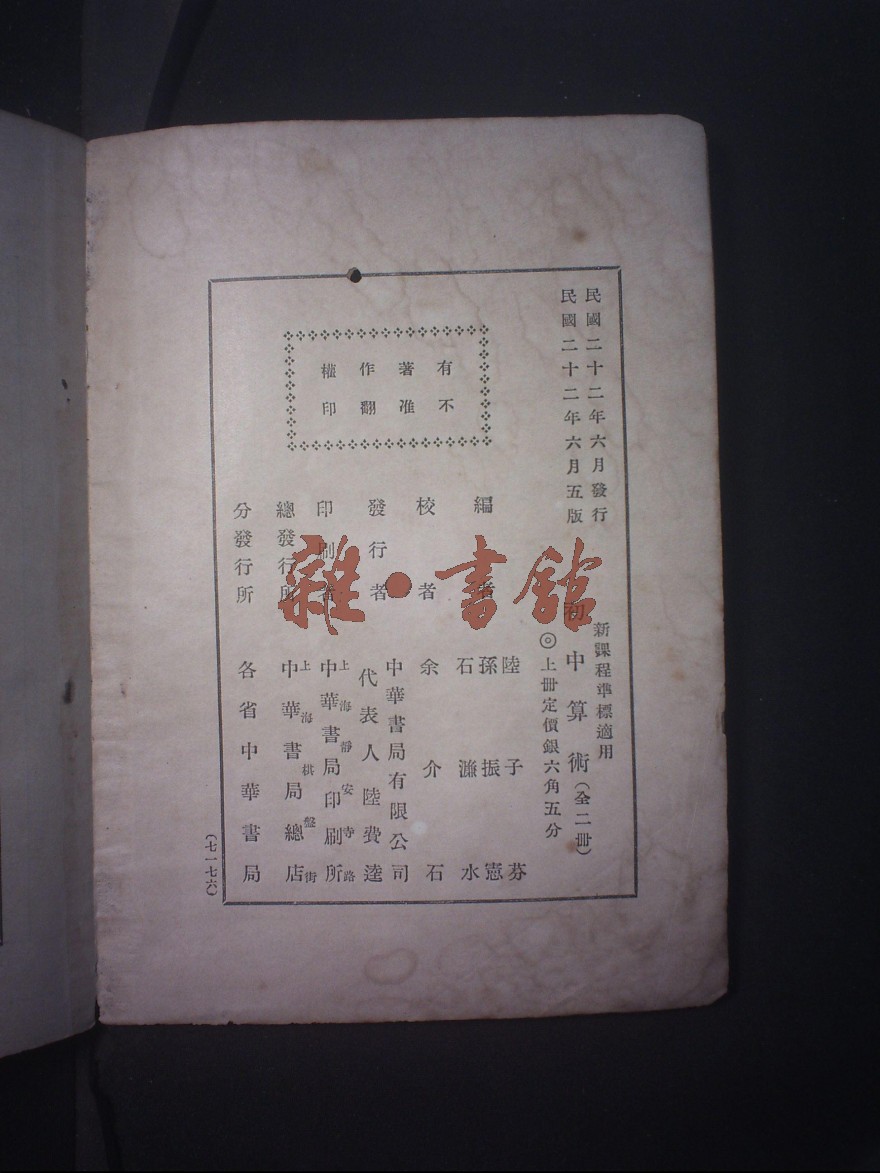 民國二十二年六月發行
民國二十二年六月五版
新課程準標適用
初中算術（全二冊）
◎上冊定價銀六角五分
有不
著准
作翻
權印
編者
陸子芬
孫振憲
石濂水
校者
余介石
發行者
中華書局有限公司
代表人陸費逵
印刷者
上海靜安寺路
中華書局印刷所
總發行所
上海棋盤街
中華書局總店
分發行所
各省中華書局
（七一七六）
雜·書館